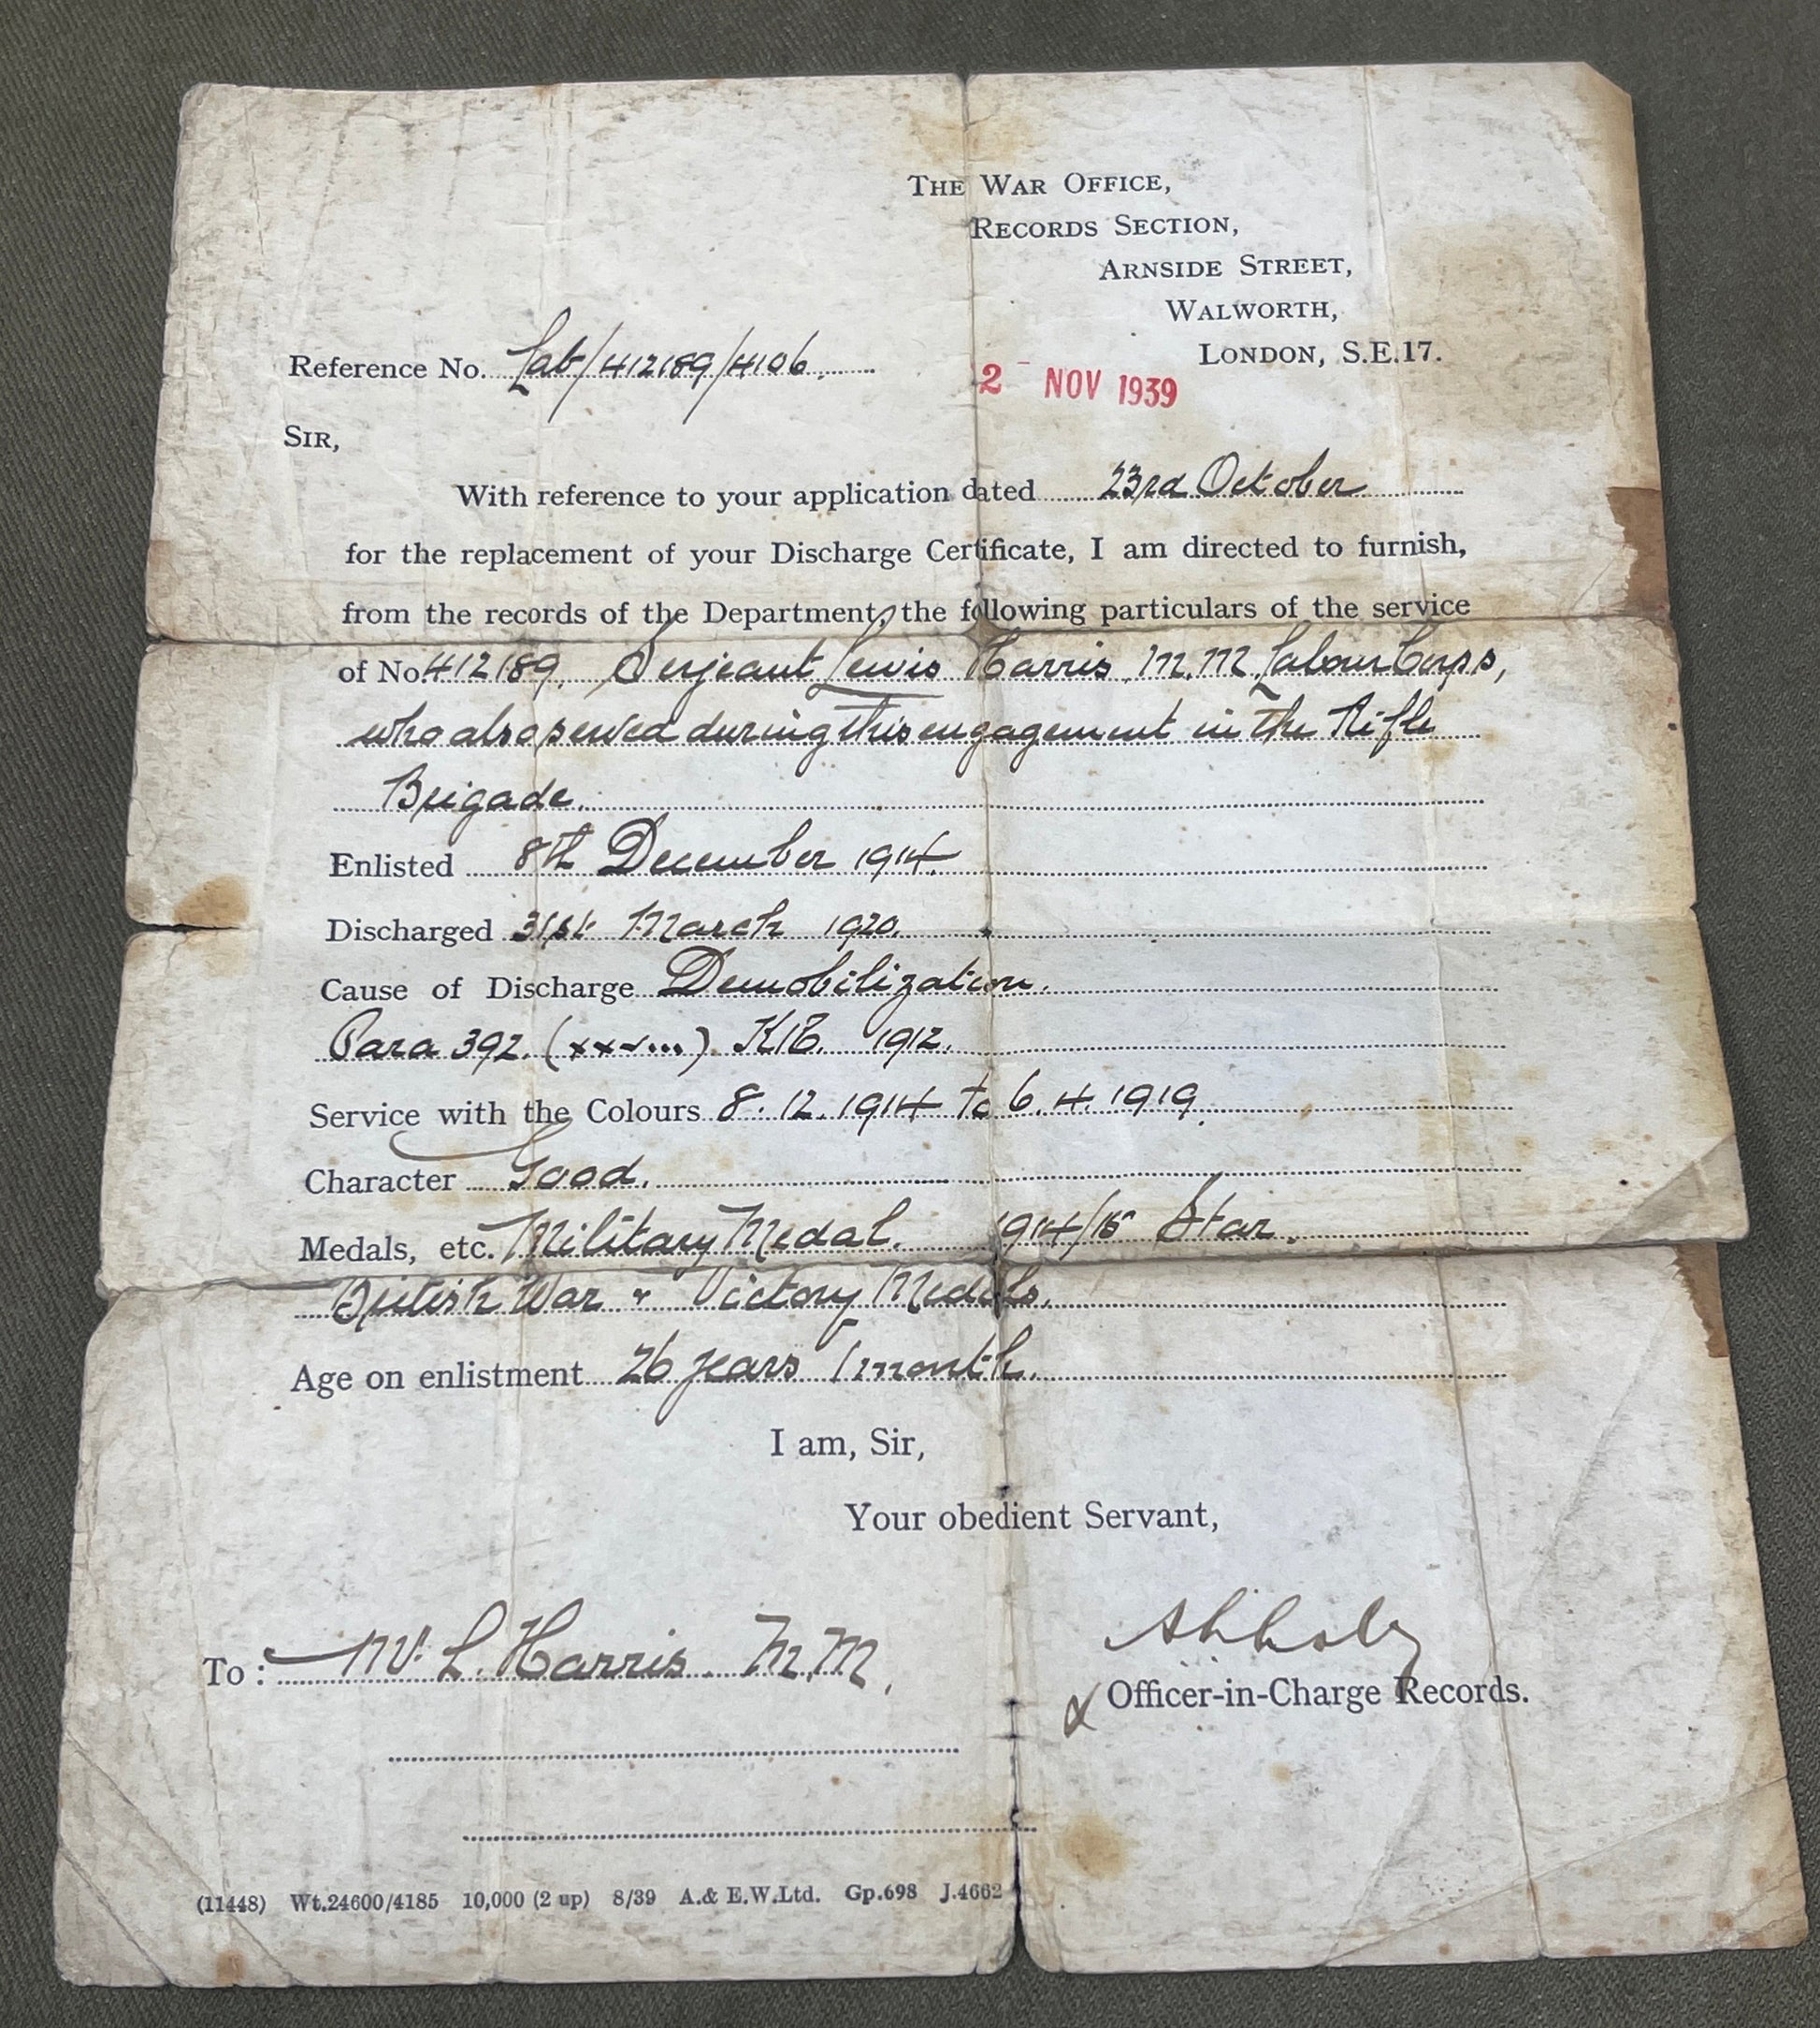 THE WAR OFFICE,
RECORDS SECTION,
ARNSIDE STREET,
WALWORTH,
LONDON, S.E.17.
Reference No. Lab/412189/4106.
2 - NOV 1939
SIR,
With reference to your application dated 23rd October
for the replacement of your Discharge Certificate, I am directed to furnish,
from the records of the Department, the following particulars of the service
of No. 412189. Serjeant Lewis Harris. M.M. Labour Corps,
who also served during this engagement in the Rifle
Brigade.
Enlisted 8th December 1914.
Discharged 31st March 1920.
Cause of Discharge Demobilization.
Para 392. (xxv...). KR. 1912.
Service with the Colours 8.12.1914 to 6.4.1919.
Character Good.
Medals, etc. Military Medal. 1914/15 Star.
British War & Victory Medals.
Age on enlistment 26 years 1 month.
I am, Sir,
Your obedient Servant,
To: Mr. L. Harris. M.M.
Officer-in-Charge Records.
(11448) Wt.24600/4185 10,000 (2 up) 8/39 A.& E.W.Ltd. Gp.698 J.4662